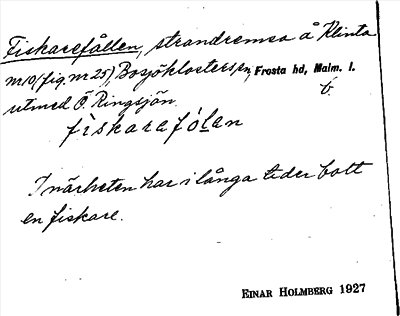 Fiskarefållen, strandremsa å Klinta
nr 10 (fig. nr 25), Bosjöklosters sn, Frosta hd, Malm. l.
utmed Ö. Ringsjön.
I närheten har i långa tider bott
en fiskare.
EINAR HOLMBERG 1927